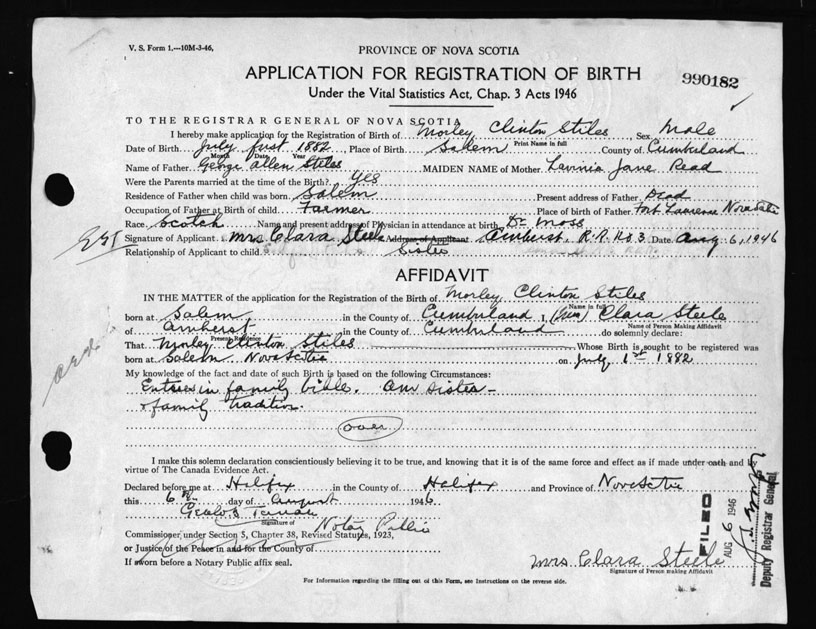 V. S. Form 1.—10M-3-46,
PROVINCE OF NOVA SCOTIA
APPLICATION FOR REGISTRATION OF BIRTH
990182
Under the Vital Statistics Act, Chap. 3 Acts 1946
TO THE REGISTRAR GENERAL OF NOVA SCOTIA
I hereby make application for the Registration of Birth of Morley Clinton Stiles Sex Male
Print Name in full
Date of Birth July first 1882 Place of Birth Salem County of Cumberland
Month Date Year
Name of Father George Allen Stiles MAIDEN NAME of Mother Lavinia Jane Read
Were the Parents married at the time of Birth? Yes
Residence of Father when child was born. Salem Present address of Father Dead
Occupation of Father at Birth of child Farmer Place of birth of Father Fort Lawrence Nova Scotia
Race Scotch Name and present address of Physician in attendance at birth Dr Moss
Signature of Applicant Mrs Clara Steele Address of Applicant Amherst, R.R. No. 3 Date Aug 6, 1946
Relationship of Applicant to child Sister
AFFIDAVIT
IN THE MATTER of the application for the Registration of the Birth of Morley Clinton Stiles
Name in full
born at Salem in the County of Cumberland I, (Mrs) Clara Steele
Name of Person Making Affidavit
of Amherst in the County of Cumberland do solemnly declare:
Present Residence
That Morley Clinton Stiles Whose Birth is sought to be registered was
born at Salem Nova Scotia on July 1st 1882
My knowledge of the fact and date of such Birth is based on the following Circumstances:
Entries in family bible. Am sister –
& family tradition.
over
I make this solemn declaration conscientiously believing it to be true, and knowing that it is of the same force and effect as if made under oath and by
virtue of The Canada Evidence Act.
Declared before me at Halifax in the County of Halifax and Province of Nova Scotia
this 6th day of August 1946
Signature of
Notary Public
Commissioner under Section 5, Chapter 38, Revised Statutes, 1923,
or Justice of the Peace in and for the County of
If sworn before a Notary Public affix seal.
Mrs Clara Steele
Signature of Person making Affidavit
FILED
AUG 6 1946
Deputy Registrar General
For Information regarding the filling out of this Form, see Instructions on the reverse side.